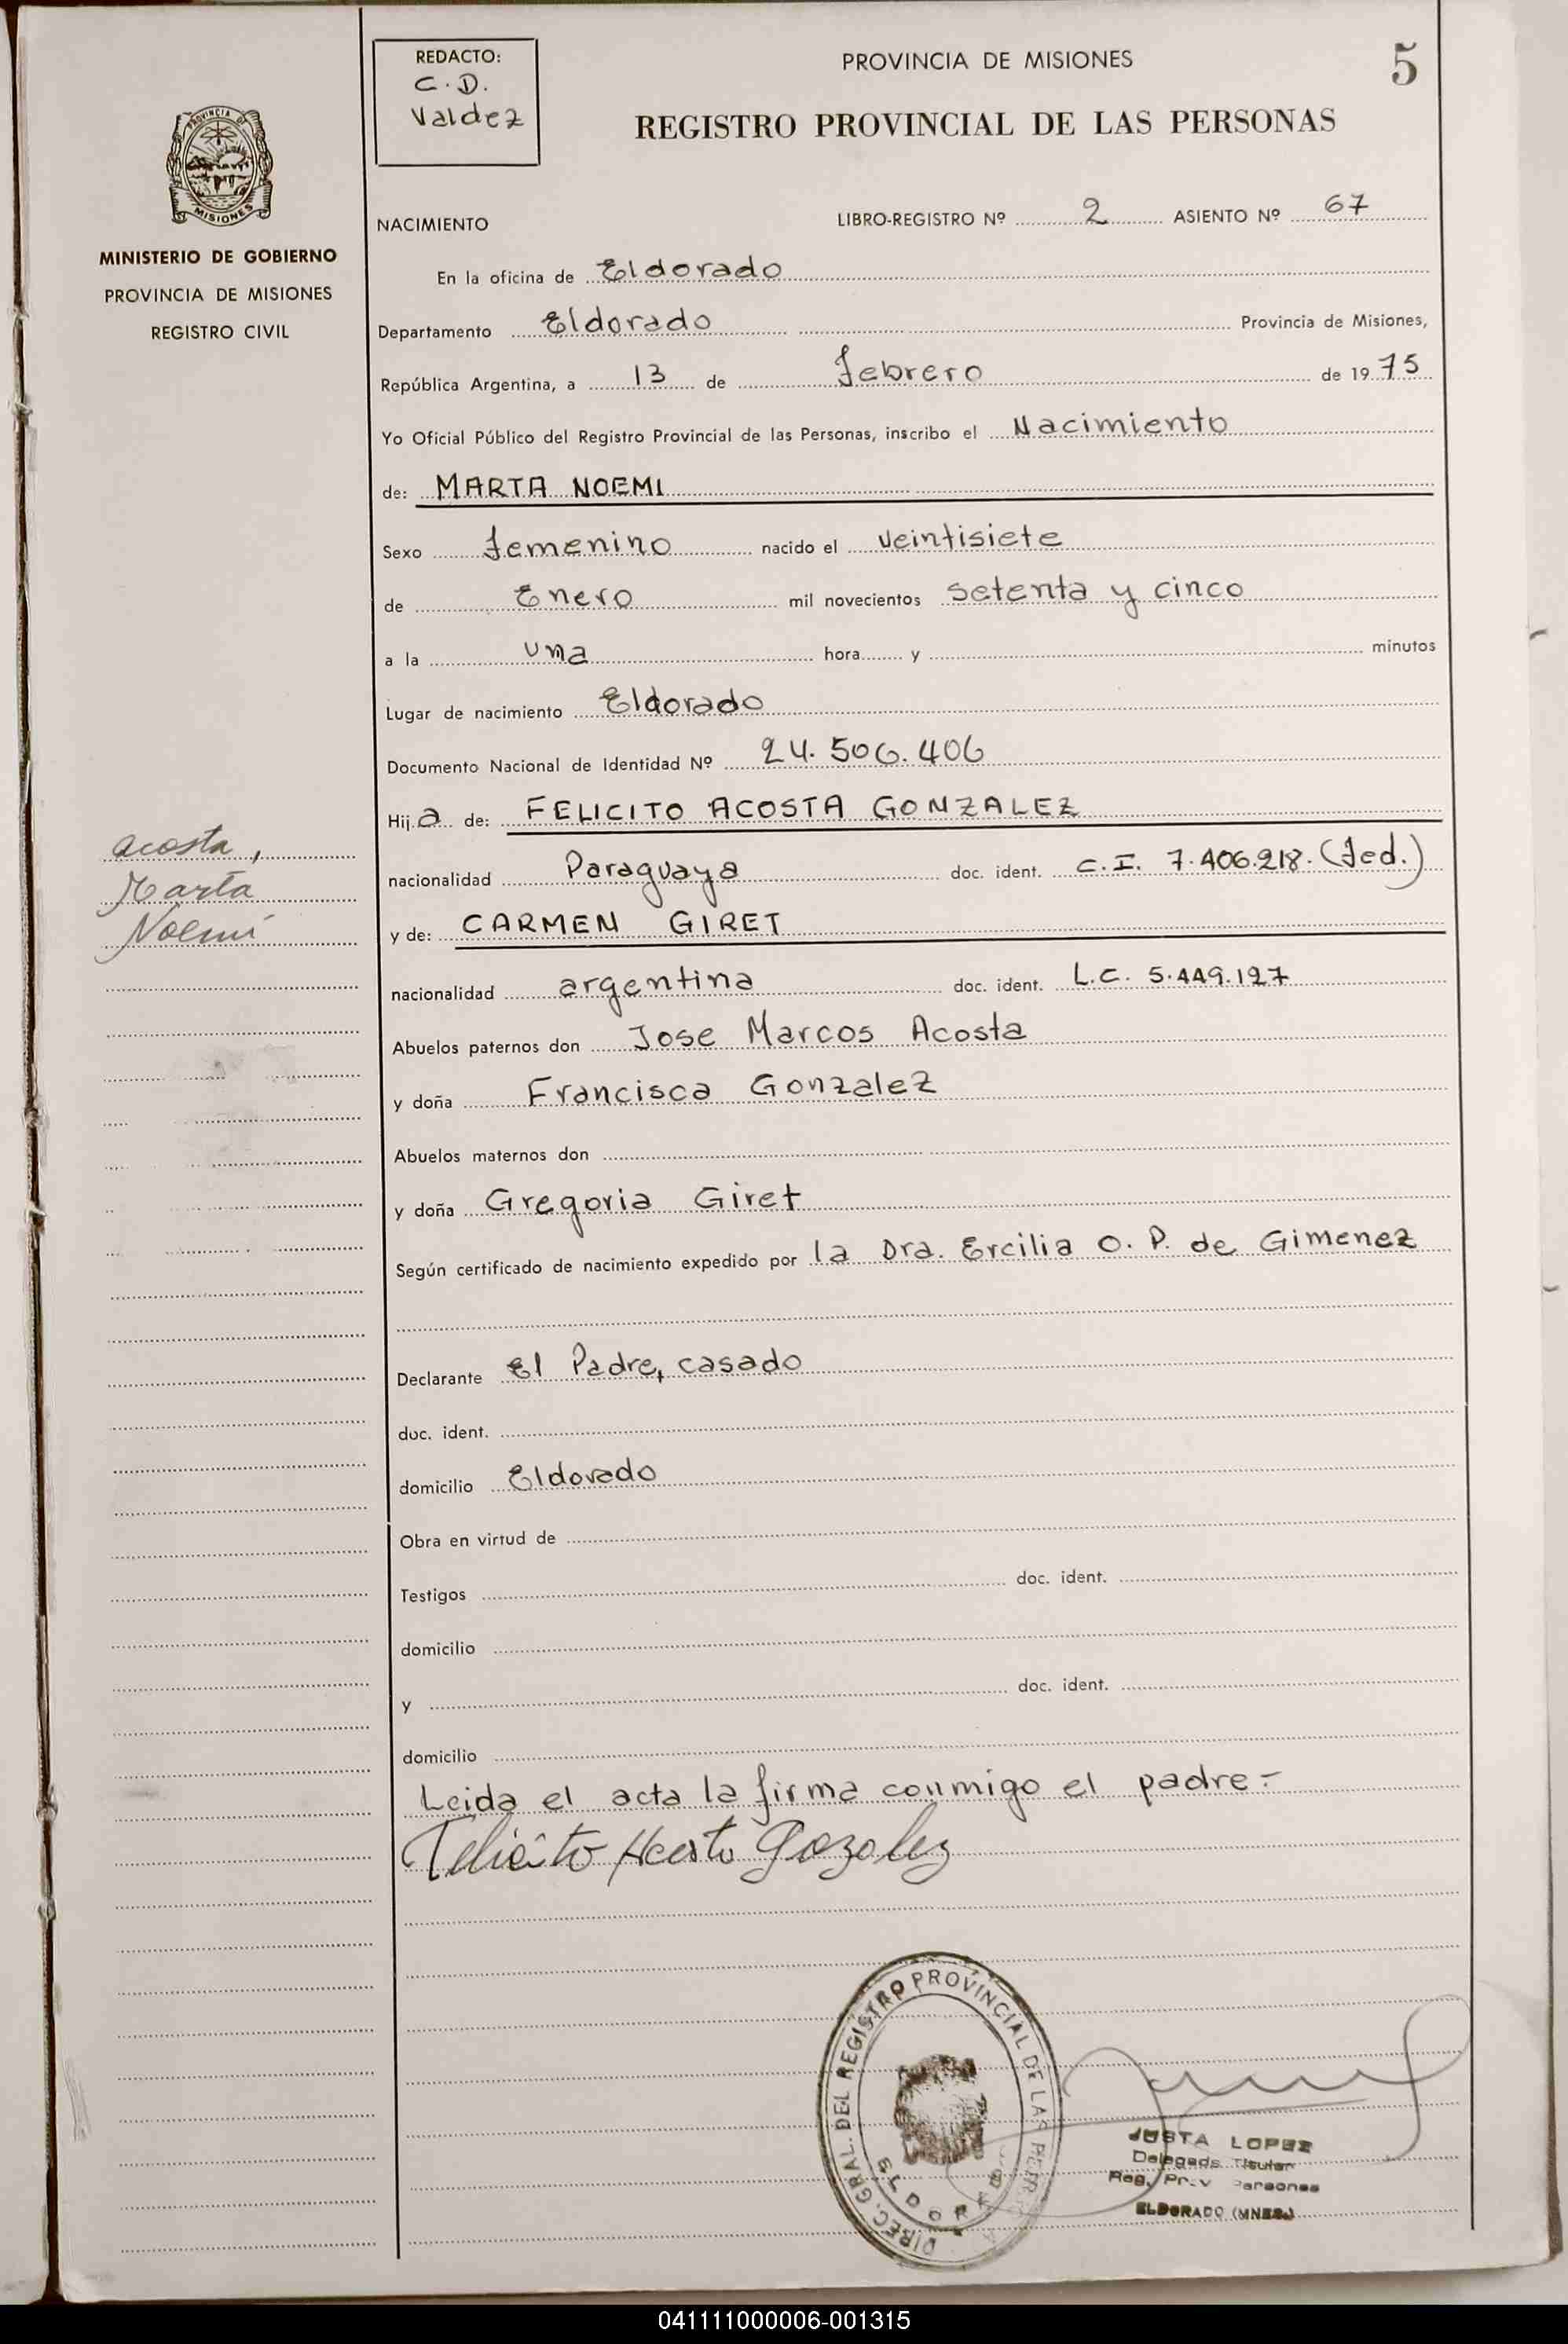 REDACTO:
C. D.
Valdez
PROVINCIA DE MISIONES
5
REGISTRO PROVINCIAL DE LAS PERSONAS
PROVINCIA DE
MISIONES
MINISTERIO DE GOBIERNO
PROVINCIA DE MISIONES
REGISTRO CIVIL
NACIMIENTO LIBRO-REGISTRO Nº 2 ASIENTO Nº 67
En la oficina de Eldorado
Departamento Eldorado Provincia de Misiones,
República Argentina, a 13 de febrero de 1975
Yo Oficial Público del Registro Provincial de las Personas, inscribo el Nacimiento
de: MARTA NOEMI
Sexo femenino nacido el veintisiete
de Enero mil novecientos setenta y cinco
a la una hora y minutos
Lugar de nacimiento Eldorado
Documento Nacional de Identidad Nº 24.506.406
Hija de: FELICITO ACOSTA GONZALEZ
acosta,
Marta
Noemí
nacionalidad Paraguaya doc. ident. C.I. 7.406.218. (fed.)
y de: CARMEN GIRET
nacionalidad argentina doc. ident. L.C. 5.449.127
Abuelos paternos don Jose Marcos Acosta
y doña Francisca Gonzalez
Abuelos maternos don
y doña Gregoria Giret
Según certificado de nacimiento expedido por la Dra. Ercilia O. P. de Gimenez
Declarante El Padre, casado
doc. ident.
domicilio Eldorado
Obra en virtud de
Testigos doc. ident.
domicilio
y doc. ident.
domicilio
Leida el acta la firma conmigo el padre.-
Felicito Acosta Gozalez
DIREC. GRAL. DEL REGISTRO PROVINCIAL DE LAS
JUSTA LOPEZ
Delegada Titular
Reg. Prov Personas
ELDORADO (MNES.)
041111000006-001315